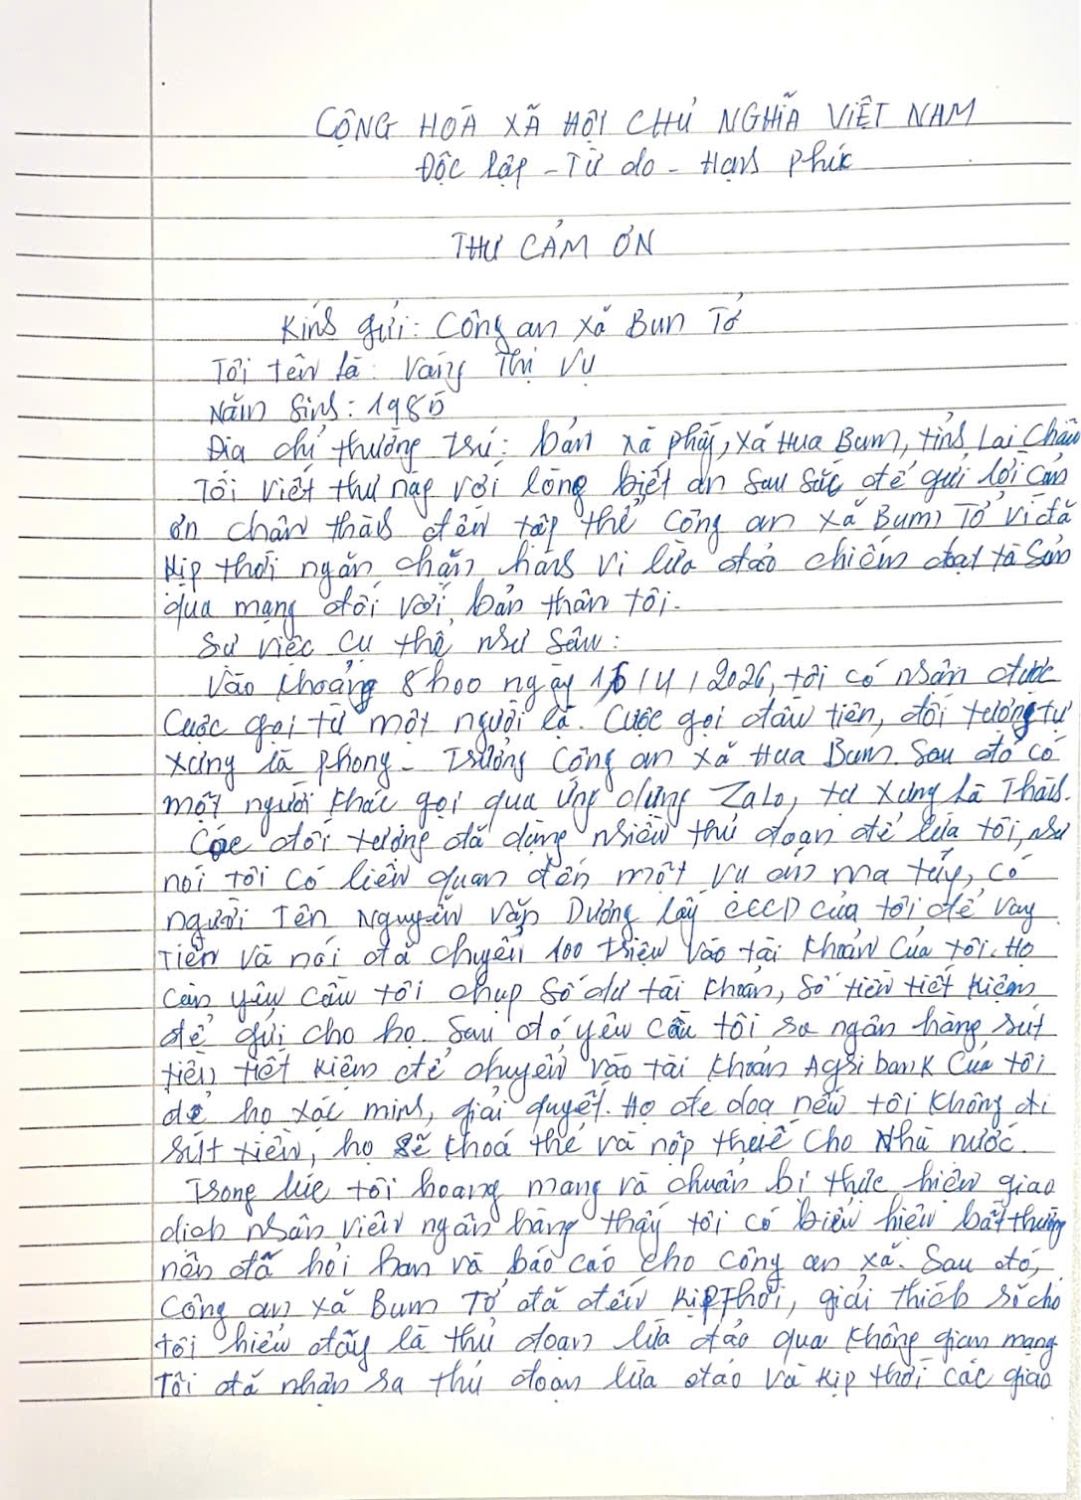 CỘNG HOÀ XÃ HỘI CHỦ NGHĨA VIỆT NAM
Độc lập - Tự do - Hạnh Phúc
THƯ CẢM ƠN
Kính gửi: Công an xã Bum Tở
Tôi tên là: Vàng Thị Vụ
Năm Sinh: 1985
Địa chỉ thường trú: bản xà phấy, xã Hua Bum, tỉnh Lai Châu
Tôi viết thư này với lòng biết ơn sâu sắc để gửi lời cảm
ơn chân thành đến tập thể Công an xã Bum Tở vì đã
kịp thời ngăn chặn hành vi lừa đảo chiếm đoạt tà Sản
qua mạng đối với bản thân tôi.
Sự việc cụ thể như sau:
Vào khoảng 8h00 ngày 15/4/2026, tôi có nhận được
Cuộc gọi từ một người lạ. Cuộc gọi đầu tiên, đối tượng tự
xưng là Phong - Trưởng Công an xã Hua Bum. Sau đó có
một người khác gọi qua ứng dụng Zalo, tự xưng là Thành.
Các đối tượng đã dùng nhiều thủ đoạn để lừa tôi, như
nói tôi có liên quan đến một vụ án ma túy, có
người Tên Nguyễn Văn Dương lấy CCCD của tôi để vay
Tiền và nói đã chuyển 100 triệu vào tài khoản của tôi. Họ
còn yêu cầu tôi chụp số dư tài khoản, số tiền tiết kiệm
để gửi cho họ. Sau đó, yêu cầu tôi ra ngân hàng rút
tiền tiết kiệm để chuyển vào tài khoản Agribank Của tôi
để họ xác minh, giải quyết. Họ đe dọa nếu tôi không đi
rút tiền, họ sẽ khoá thẻ và nộp thuế cho Nhà nước.
Trong lúc tôi hoang mang và chuẩn bị thực hiện giao
dịch nhân viên ngân hàng thấy tôi có biểu hiện bất thường
nên đã hỏi han và báo cáo cho công an xã. Sau đó,
Công an xã Bum Tở đã đến kịp Thời, giải thích rõ cho
tôi hiểu đây là thủ đoạn lừa đảo qua không gian mạng
Tôi đã nhận ra thủ đoạn lừa đảo và kịp thời các giao